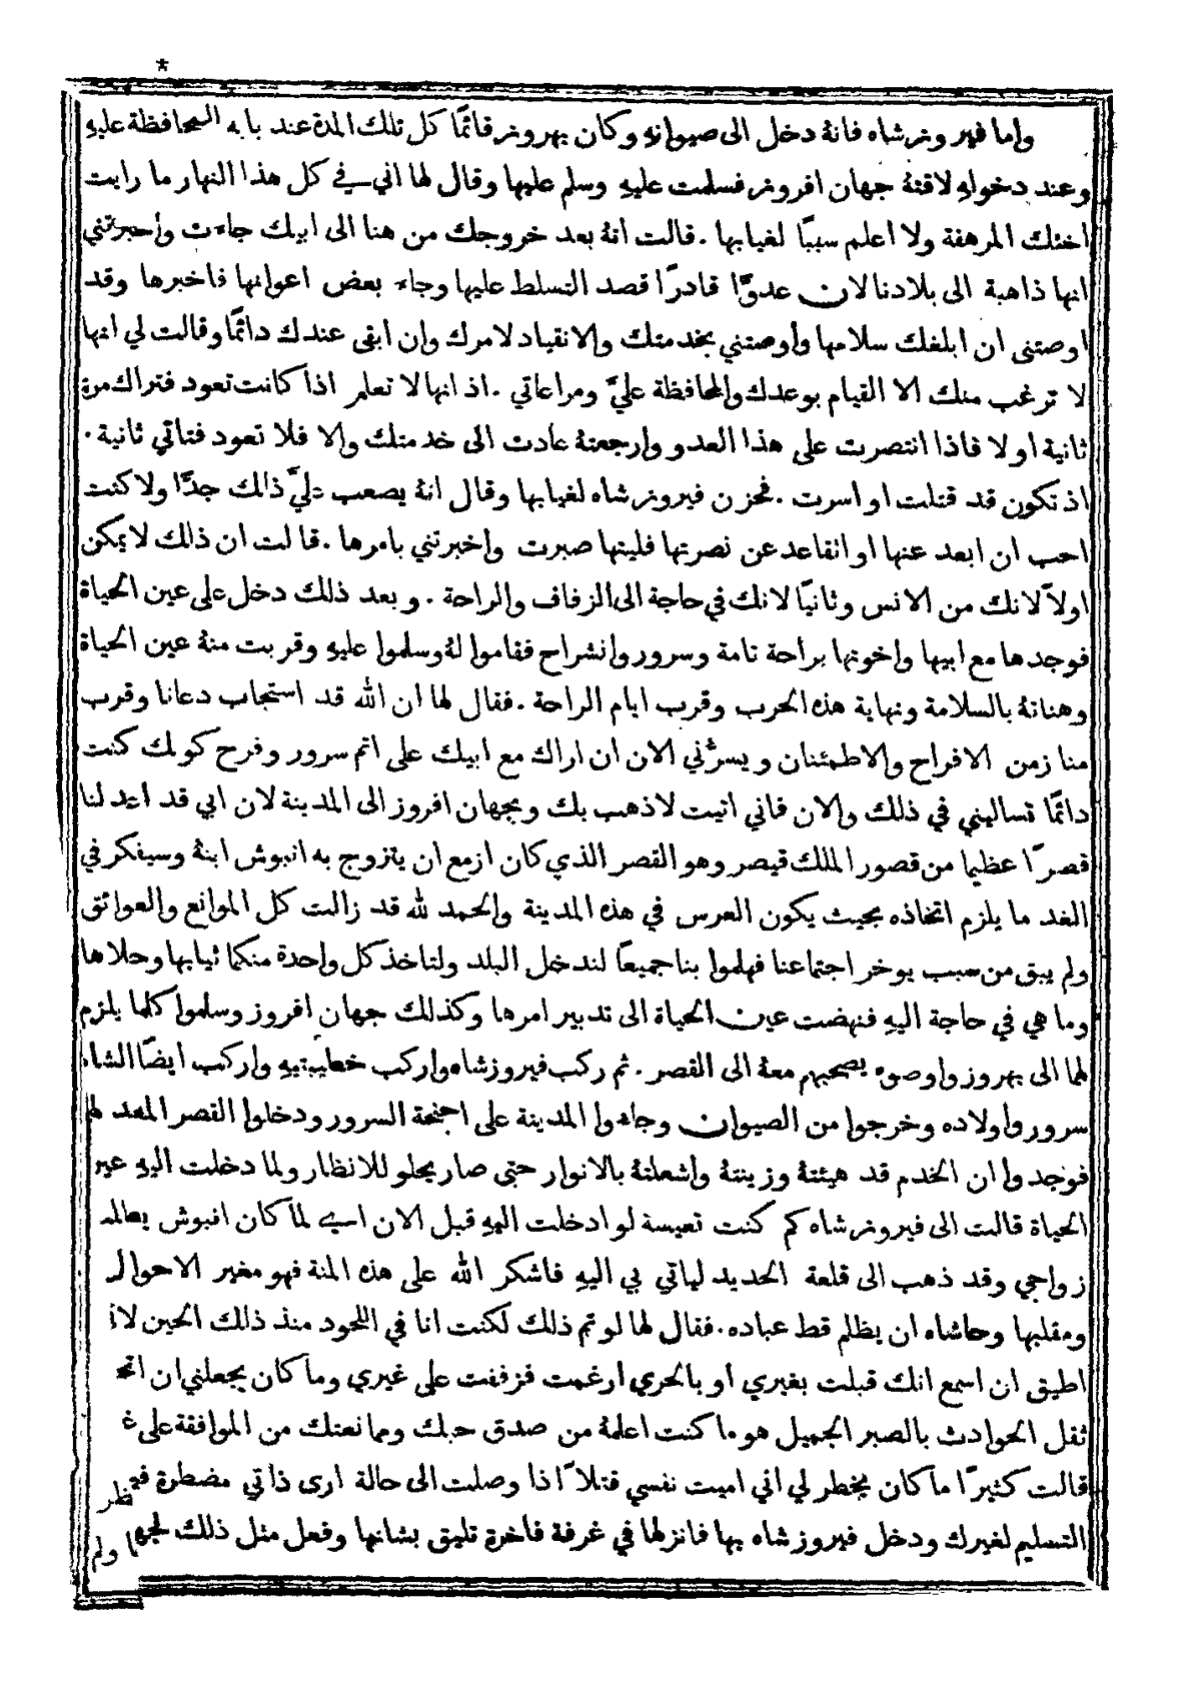 *
واما فيروزشاه فانهُ دخل الى صيوانهِ وكان بهروز قائمًا كل تلك المدة عند بابه للمحافظة عليهِ
وعند دخولهِ لاقتهُ جهان افروز فسلمت عليهِ وسلم عليها وقال لها اني في كل هذا النهار ما رايت
اختك المرهفة ولا اعلم سببًا لغيابها . قالت انهُ بعد خروجك من هنا الى ابيك جاءت واخبرتني
انها ذاهبة الى بلادنا لان عدوًّا قادرًا قصد التسلط عليها وجاء بعض اعوانها فاخبرها وقد
اوصتني ان ابلغك سلامها واوصتني بخدمتك والانقياد لامرك وان ابقى عندك دائمًا وقالت لي انها
لا ترغب منك الا القيام بوعدك والمحافظة عليَّ ومراعاتي . اذ انها لا تعلم اذا كانت تعود فتراك مرة
ثانية اولا فاذا انتصرت على هذا العدو وارجعتهُ عادت الى خدمتك والا فلا تعود فتاتي ثانية .
اذ تكون قد قتلت او اسرت . فحزن فيروزشاه لغيابها وقال انهُ يصعب عليَّ ذالك جدًّا ولا كنت
احب ان ابعد عنها او اتقاعد عن نصرتها فليتها صبرت واخبرتني بامرها . قالت ان ذلك لا يمكن
اولاً لانك من الانس وثانيًا لانك في حاجة الى الزفاف والراحة . وبعد ذلك دخل على عين الحياة
فوجدها مع ابيها واخوتها براحة تامة وسرور وانشراح فقاموا لهُ وسلموا عليهِ وقربت منهُ عين الحياة
وهنأتهُ بالسلامة ونهاية هذه الحرب وقرب ايام الراحة . فقال لها ان الله قد استجاب دعانا وقرب
منا زمن الافراح والاطمئنان ويسرُّني الان ان اراك مع ابيك على اتم سرور وفرح كونك كنت
دائمًا تساليني في ذلك والان فاني اتيت لاذهب بك وبجهان افروز الى المدينة لان ابي قد اعد لنا
قصرًا عظيما من قصور الملك قيصر وهو القصر الذي كان ازمع ان يتزوج به انبوش ابنهُ وسيفكر في
الغد ما يلزم اتخاذه بحيث يكون العرس في هذه المدينة والحمد لله قد زالت كل الموانع والعوائق
ولم يبق من سبب يوخر اجتماعنا فهلموا بنا جميعًا لندخل البلد ولتاخذ كل واحدة منكما ثيابها وحلاها
وما هي في حاجة اليهِ فنهضت عين الحياة الى تدبير امرها وكذلك جهان افروز وسلموا كلما يلزم
لهما الى بهروز واوصوه يصحبهم معهُ الى القصر . ثم ركب فيروزشاه واركب خطيبتيهِ واركب ايضًا الشاه
سرور واولاده وخرجوا من الصيوان وجاءوا المدينة على اجنحة السرور ودخلوا القصر المعد لهم
فوجدوا ان الخدم قد هيئتهُ وزينتهُ واشعلتهُ بالانوار حتى صار يجلو للانظار ولما دخلت اليهِ عين
الحياة قالت الى فيروزشاه كم كنت تعيسة لو ادخلت اليهِ قبل الان اي لما كان انبوش يعالم
زواجي وقد ذهب الى قلعة الحديد لياتي بي اليهِ فاشكر الله على هذه المنة فهو مغير الاحوال
ومقلبها وحاشاه ان يظلم قط عباده . فقال لها لو تم ذلك لكنت انا في اللحود منذ ذلك الحين
اطيق ان اسمع انك قبلت بغيري او بالحري ارغمت فزففت على غيري وما كان يجعلني ان
ثقل الحوادث بالصبر الجميل هو ما كنت اعلمهُ من صدق حبك وممانعتك من الموافقة على
قالت كثيرًا ما كان يخطر لي اني اميت نفسي قتلاً اذا وصلت الى حالة ارى ذاتي مضطرة
التسليم لغيرك ودخل فيروزشاه بها فانزلها في غرفة فاخرة تليق بشانها وفعل مثل ذلك
ولم